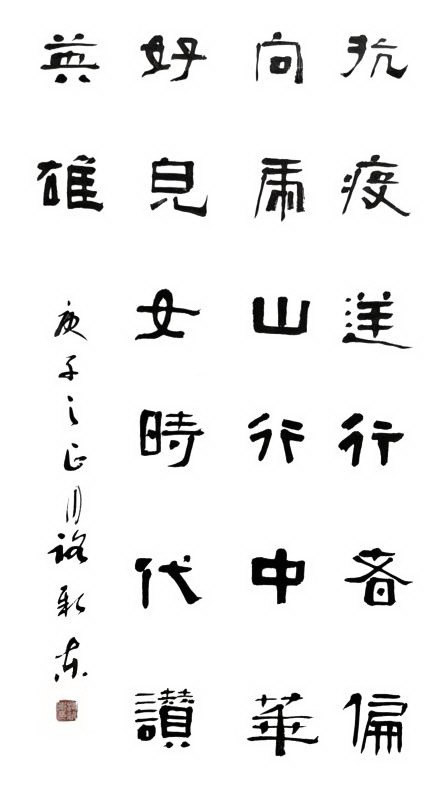 抗疫逆行者偏
向虎山行中華
好兒女時代讚
英雄
庚子之正月